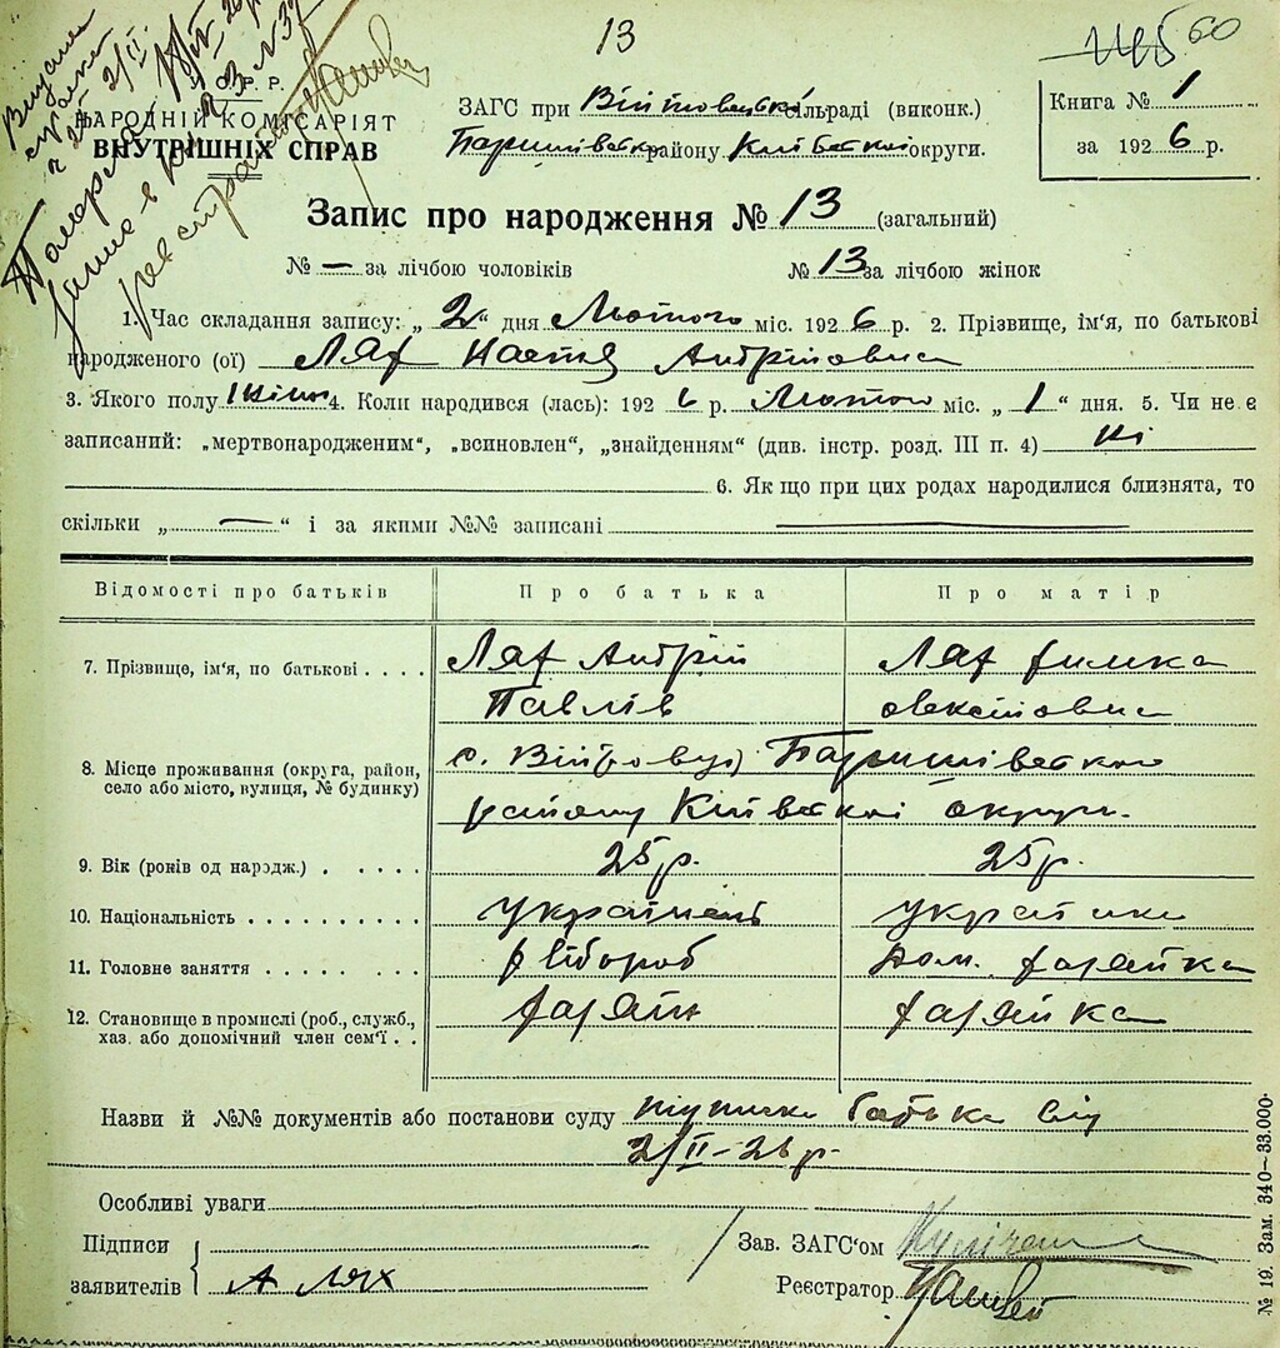 13
60
У. С. Р. Р.
НАРОДНІЙ КОМІСАРІЯТ
ВНУТРІШНІХ СПРАВ
ЗАГС при Війтовецькій сільраді (виконк.)
Баришівського району Київської округи.
Книга № 1
за 1926 р.
Запис про народження № 13 (загальний)
№ — за лічбою чоловіків № 13 за лічбою жінок
1. Час складання запису: „ 2 “ дня Лютого міс. 1926 р. 2. Прізвище, ім'я, по батькові
народженого (ої) Лях Настя Андріївна
3. Якого полу Жіноч 4. Коли народився (лась): 192 6 р. Лютого міс. „ 1 “ дня. 5. Чи не є
записаний: „мертвонародженим“, „всиновлен“, „знайденням“ (див. інстр. розд. III п. 4) Ні
6. Як що при цих родах народилися близнята, то
скільки „ — “ і за якими №№ записані —
Відомості про батьків Про батька Про матір
7. Прізвище, ім'я, по батькові . . . . Лях Андрій Лях
Павлів
8. Місце проживання (округа, район, село або місто, вулиця, № будинку) с. Війтовці Баришівського
району Київської округи.
9. Вік (років од народж.) . . . . . 25 р. 25 р.
10. Національність . . . . . . . . . . українець українка
11. Головне заняття . . . . . . . . хлібороб Дом. хазяйка
12. Становище в промислі (роб., служб., хазяїн хазяйка
хаз. або допомічний член сем'ї . .
Назви й №№ документів або постанови суду підписка батька від
2/II-26 р.
Особливі уваги
Підписи
заявителів А Лях
Зав. ЗАГС'ом
Реєстратор
№ 19. Зам. 340—33.000.